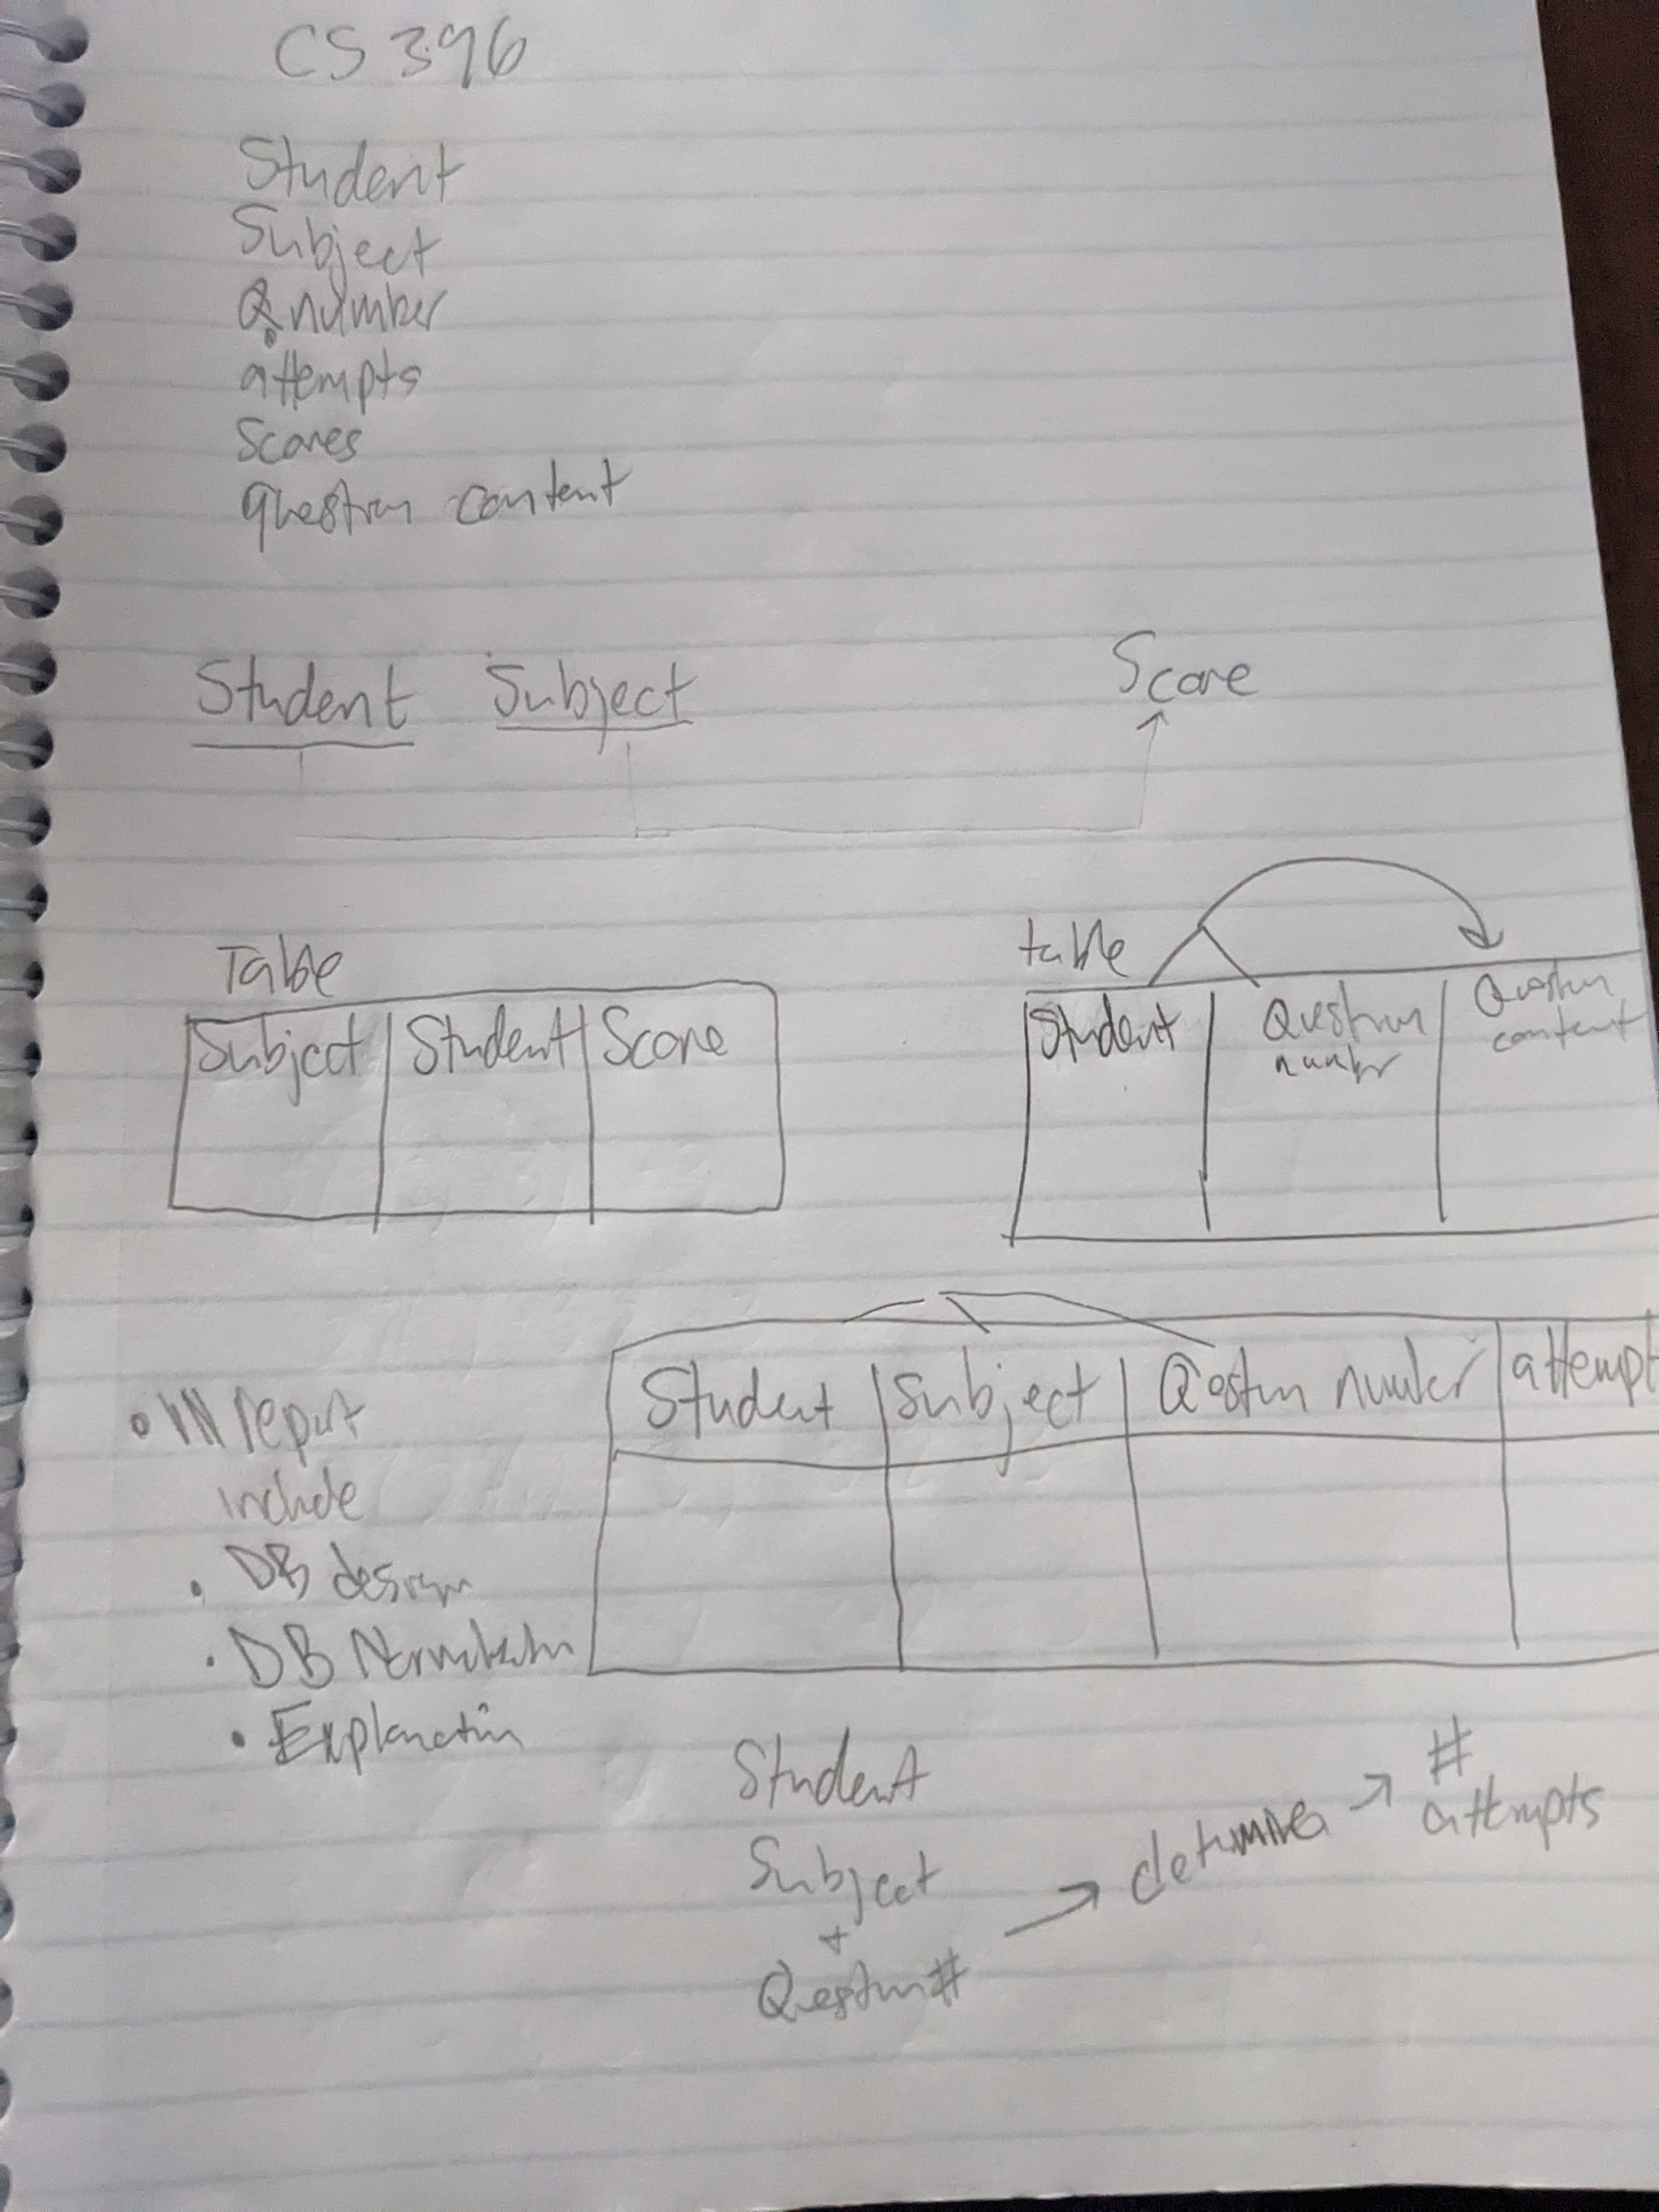 CS 396
Student
Subject
Q number
attempts
Scores
question content
Student Subject Score
Table
Subject Student Score
table
Student Question number Question content
Student Subject Question number attempt
• IN report
include
• DB design
• DB Normalization
• Explanation
Student
Subject
+
Question#
→ determines → # attempts